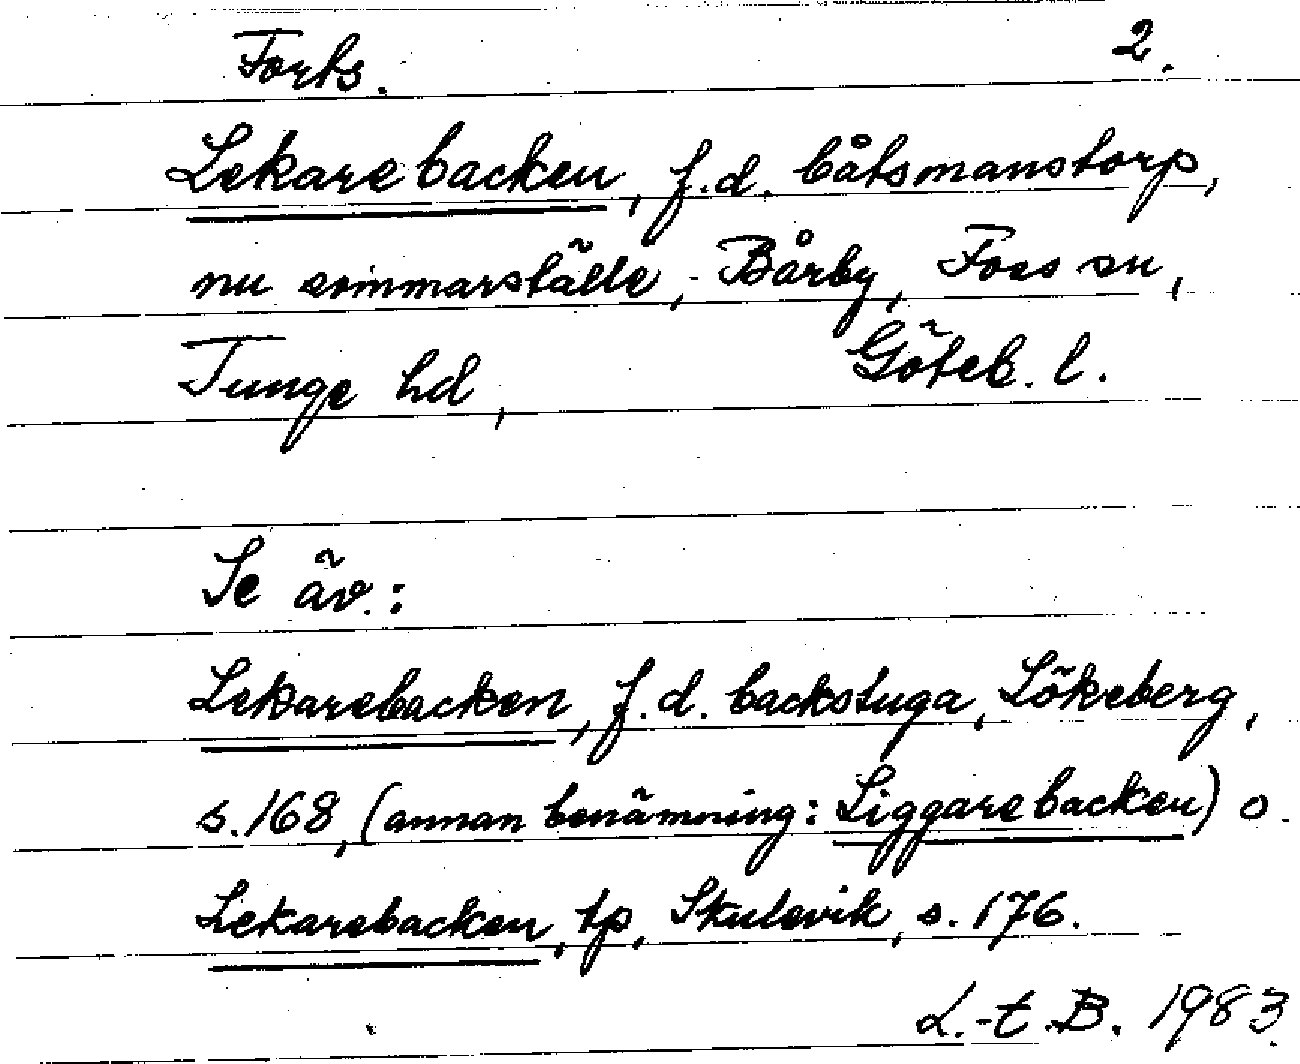 Forts. 2.
Lekarebacken, f.d. båtsmanstorp,
nu sommarställe, Bärby, Foss sn,
Tunge hd, Göteb. l.
Se äv.:
Lekarebacken, f.d. backstuga, Lökeberg,
s. 168, (annan benämning: Liggarebacken) o.
Lekarebacken, tp, Skulevik, s. 176.
L.-t. B. 1983.